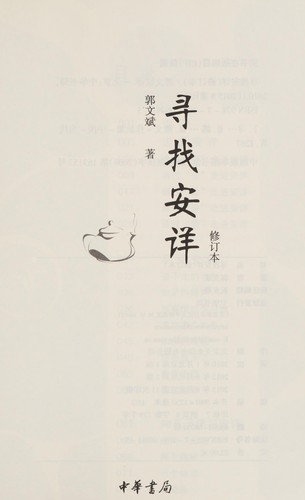 寻找安详
修订本
郭文斌 著
中華書局